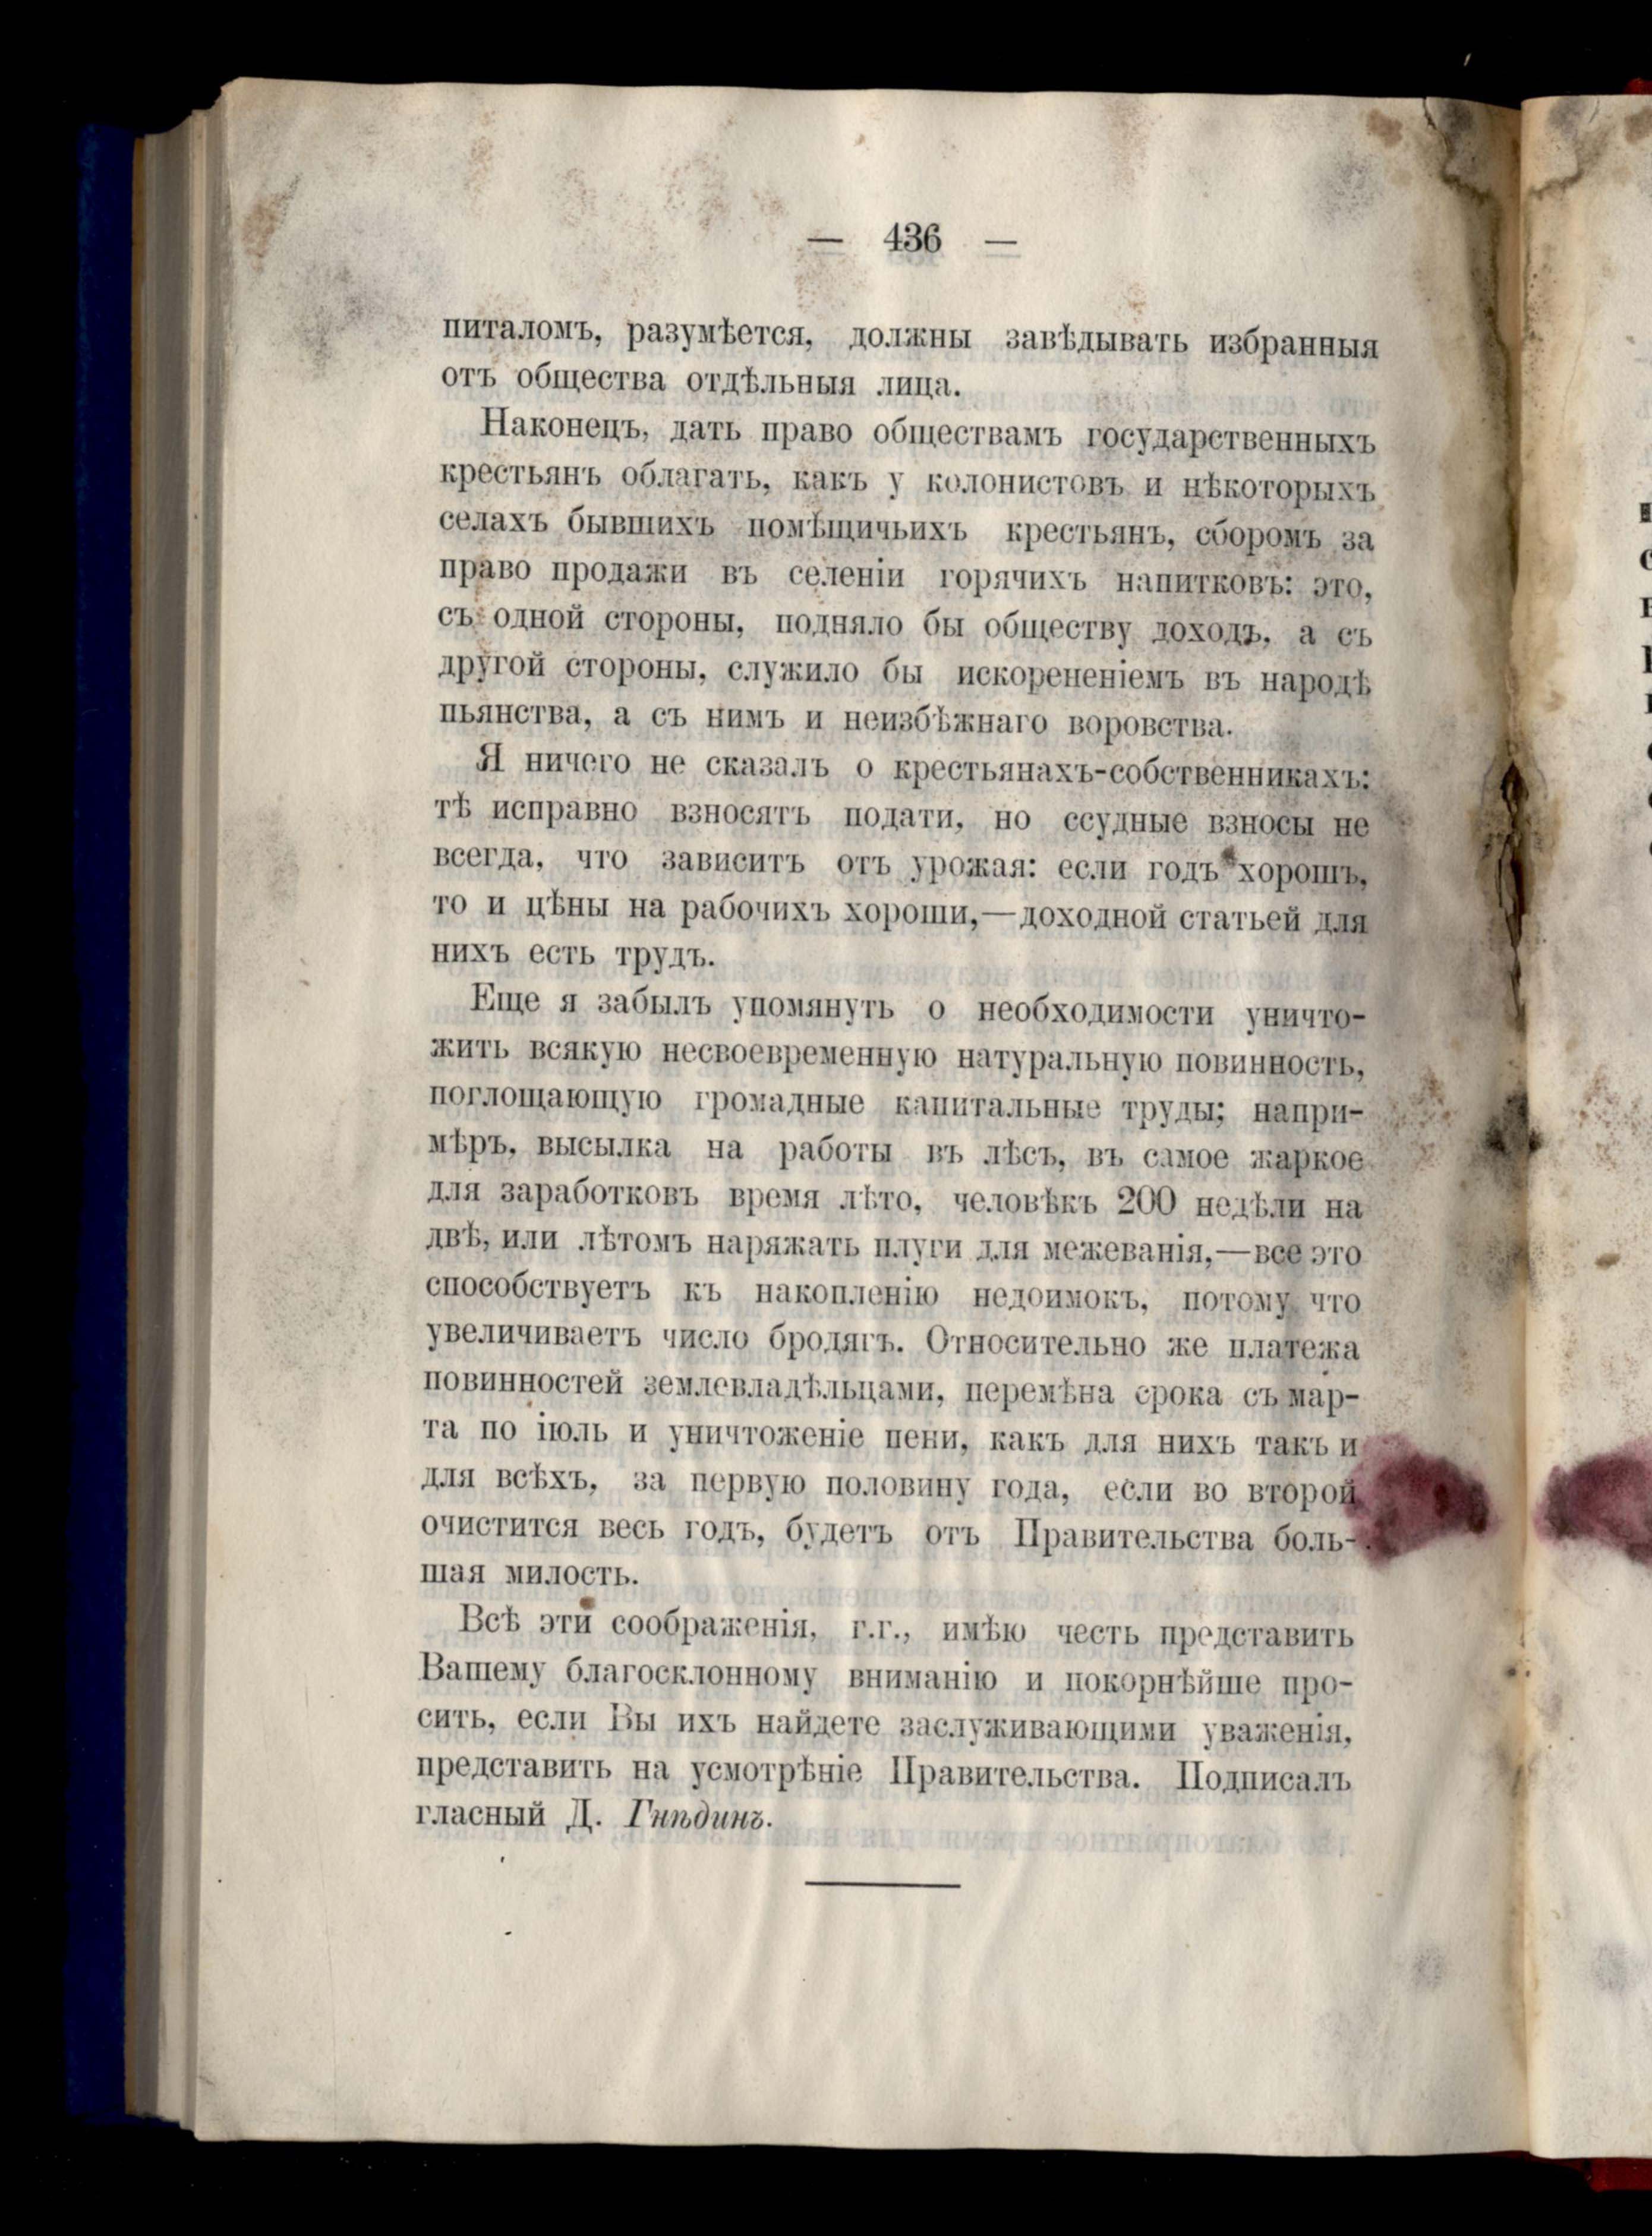 — 436 —
питаломъ, разумѣется, должны завѣдывать избранныя
отъ общества отдѣльныя лица.
Наконецъ, дать право обществамъ государственныхъ
крестьянъ облагать, какъ у колонистовъ и нѣкоторыхъ
селахъ бывшихъ помѣщичьихъ крестьянъ, сборомъ за
право продажи въ селеніи горячихъ напитковъ: это,
съ одной стороны, подняло бы обществу доходъ, а съ
другой стороны, служило бы искорененіемъ въ народѣ
пьянства, а съ нимъ и неизбѣжнаго воровства.
Я ничего не сказалъ о крестьянахъ-собственникахъ:
тѣ исправно взносятъ подати, но ссудные взносы не
всегда, что зависитъ отъ урожая: если годъ хорошъ,
то и цѣны на рабочихъ хороши,—доходной статьей для
нихъ есть трудъ.
Еще я забылъ упомянуть о необходимости уничто-
жить всякую несвоевременную натуральную повинность,
поглощающую громадные капитальные труды; напри-
мѣръ, высылка на работы въ лѣсъ, въ самое жаркое
для заработковъ время лѣто, человѣкъ 200 недѣли на
двѣ, или лѣтомъ наряжать плуги для межеванія,—все это
способствуетъ къ накопленію недоимокъ, потому что
увеличиваетъ число бродягъ. Относительно же платежа
повинностей землевладѣльцами, перемѣна срока съ мар-
та по іюль и уничтоженіе пени, какъ для нихъ такъ и
для всѣхъ, за первую половину года, если во второй
очистится весь годъ, будетъ отъ Правительства боль-
шая милость.
Всѣ эти соображенія, г.г., имѣю честь представить
Вашему благосклонному вниманію и покорнѣйше про-
сить, если Вы ихъ найдете заслуживающими уваженія,
представить на усмотрѣніе Правительства. Подписалъ
гласный Д. Гнѣдинъ.